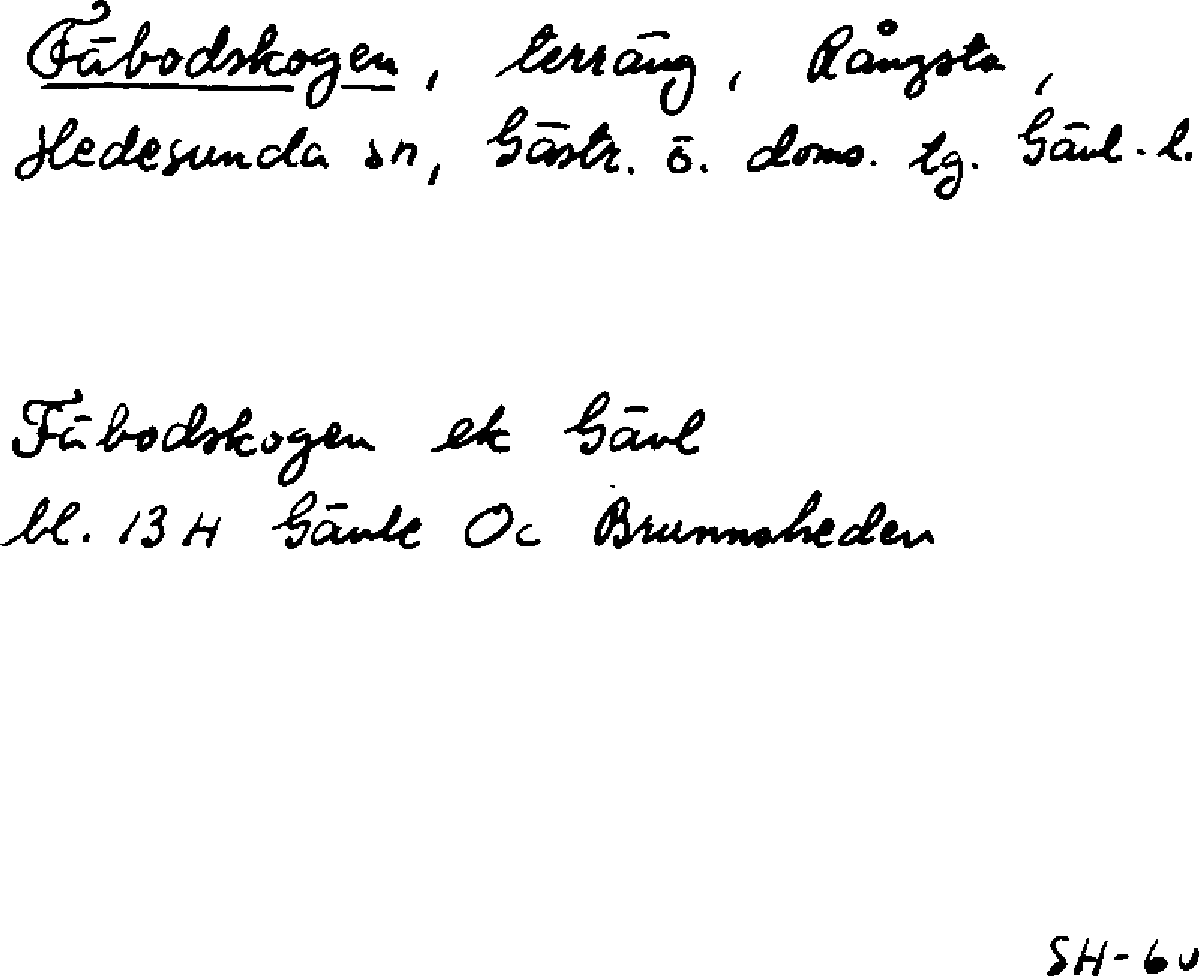 Fäbodskogen, terräng, Rångsta,
Hedesunda sn, Gästr. ö. doms. tg. Gävl. l.
Fäbodskogen ek Gävl
bl. 13 H Gävle Oc Brunnsheden